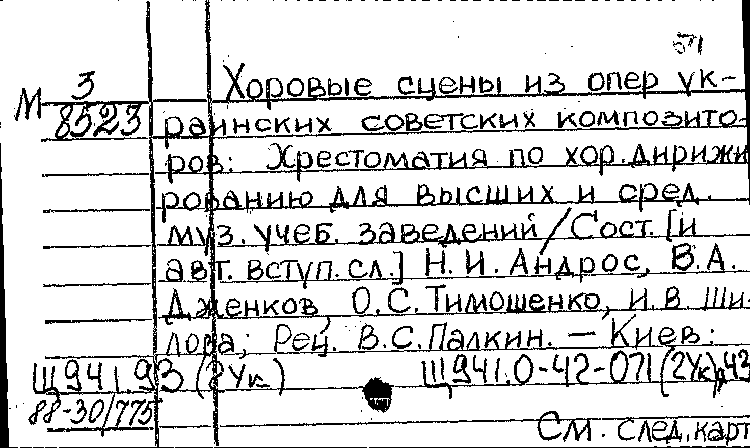 571
М 3/8523
Хоровые сцены из опер ук-
раинских советских композито-
ров: Хрестоматия по хор. дирижи
рованию для высших и сред.
муз. учеб. заведений / Сост. [и
авт. вступ. сл.] Н. И. Андрос, В. А.
Дженков, О. С. Тимошенко, И. В. Ши-
лова; Рец. В. С. Палкин. — Киев:
Щ941.93 (2Ук) Щ941.0-42-071(2Ук)я43
88-30/775
См. след. карт